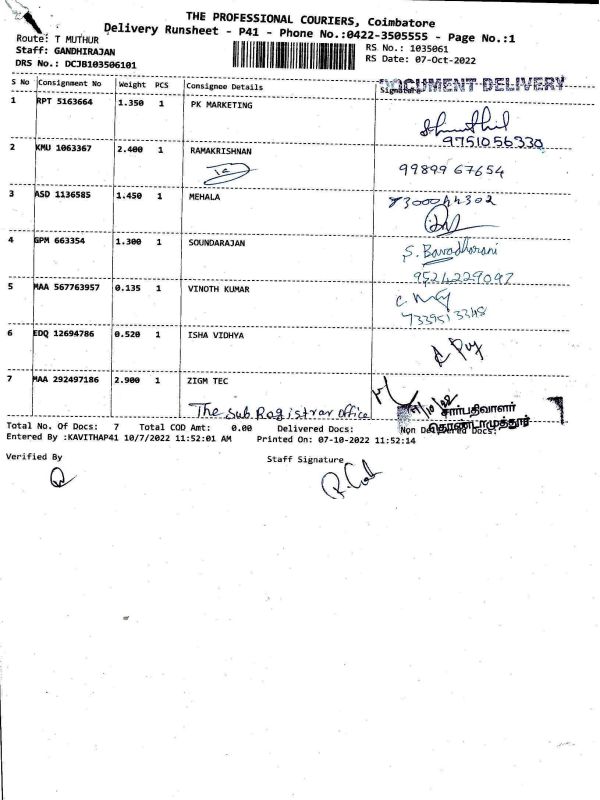 THE PROFESSIONAL COURIERS, Coimbatore
Delivery Runsheet - P41 - Phone No.:0422-3505555 - Page No.:1
Route: T MUTHUR
RS No.: 1035061
Staff: GANDHIRAJAN
RS Date: 07-Oct-2022
DRS No.: DCJB103506101
DOCUMENT DELIVERY
S No Consignment No Weight PCS Consignee Details Signature
1 RPT 5163664 1.350 1 PK MARKETING
9751056330
2 KMU 1063367 2.400 1 RAMAKRISHNAN
99899 67654
3 ASD 1136585 1.450 1 MEHALA
4 GPM 663354 1.300 1 SOUNDARAJAN S. Bavadharani
9524229097
5 MAA 567763957 0.135 1 VINOTH KUMAR
6 EDQ 12694786 0.520 1 ISHA VIDHYA
7 MAA 292497186 2.900 1 ZIGM TEC
The Sub Registrar office
சார்பதிவாளர்
தொண்டாமுத்தூர்
Total No. Of Docs: 7 Total COD Amt: 0.00 Delivered Docs: Non Delivered Docs:
Entered By :KAVITHAP41 10/7/2022 11:52:01 AM Printed On: 07-10-2022 11:52:14
Verified By Staff Signature